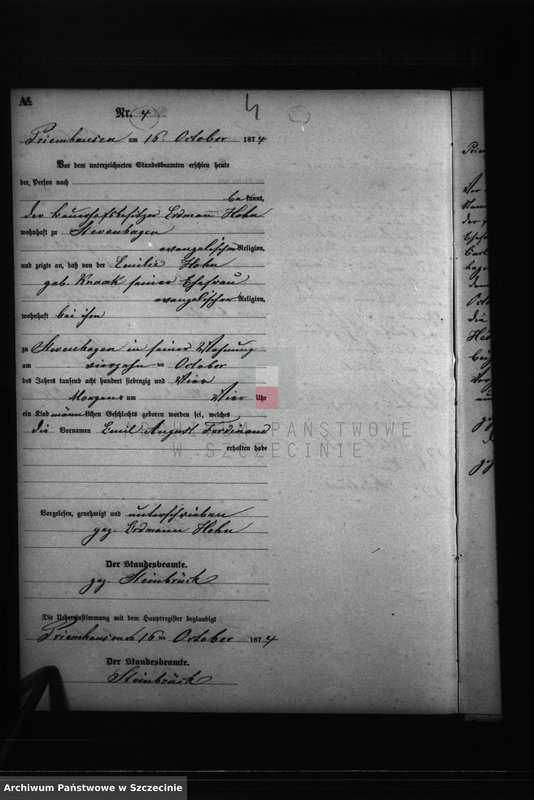 №
Nr. 4
4
Priemhausen am 16. October 1874
Vor dem unterzeichneten Standesbeamten erschien heute
der Person nach
bekannt,
der Bauerhofsbesitzer Erdmann Hohn
wohnhaft zu Stevenhagen
evangelischer Religion,
und zeigte an, daß von der Emilie Hohn
geb. Knaak seiner Ehefrau
evangelischer Religion,
wohnhaft bei ihm
zu Stevenhagen in seiner Wohnung
am vierzehn ten October
des Jahres tausend acht hundert siebenzig und vier
Morgens um vier Uhr
ein Kind männlichen Geschlechts geboren worden sei, welches
die Vornamen Emil August Ferdinand
erhalten habe
Vorgelesen, genehmigt und unterschrieben
gez. Erdmann Hohn
Der Standesbeamte.
gez. Steinbrück
Die Uebereinstimmung mit dem Hauptregister beglaubigt
Priemhausen am 16 ten October 1874
Der Standesbeamte.
Steinbrück
PAŃSTWOWE
W SZCZECINIE
Archiwum Państwowe w Szczecinie